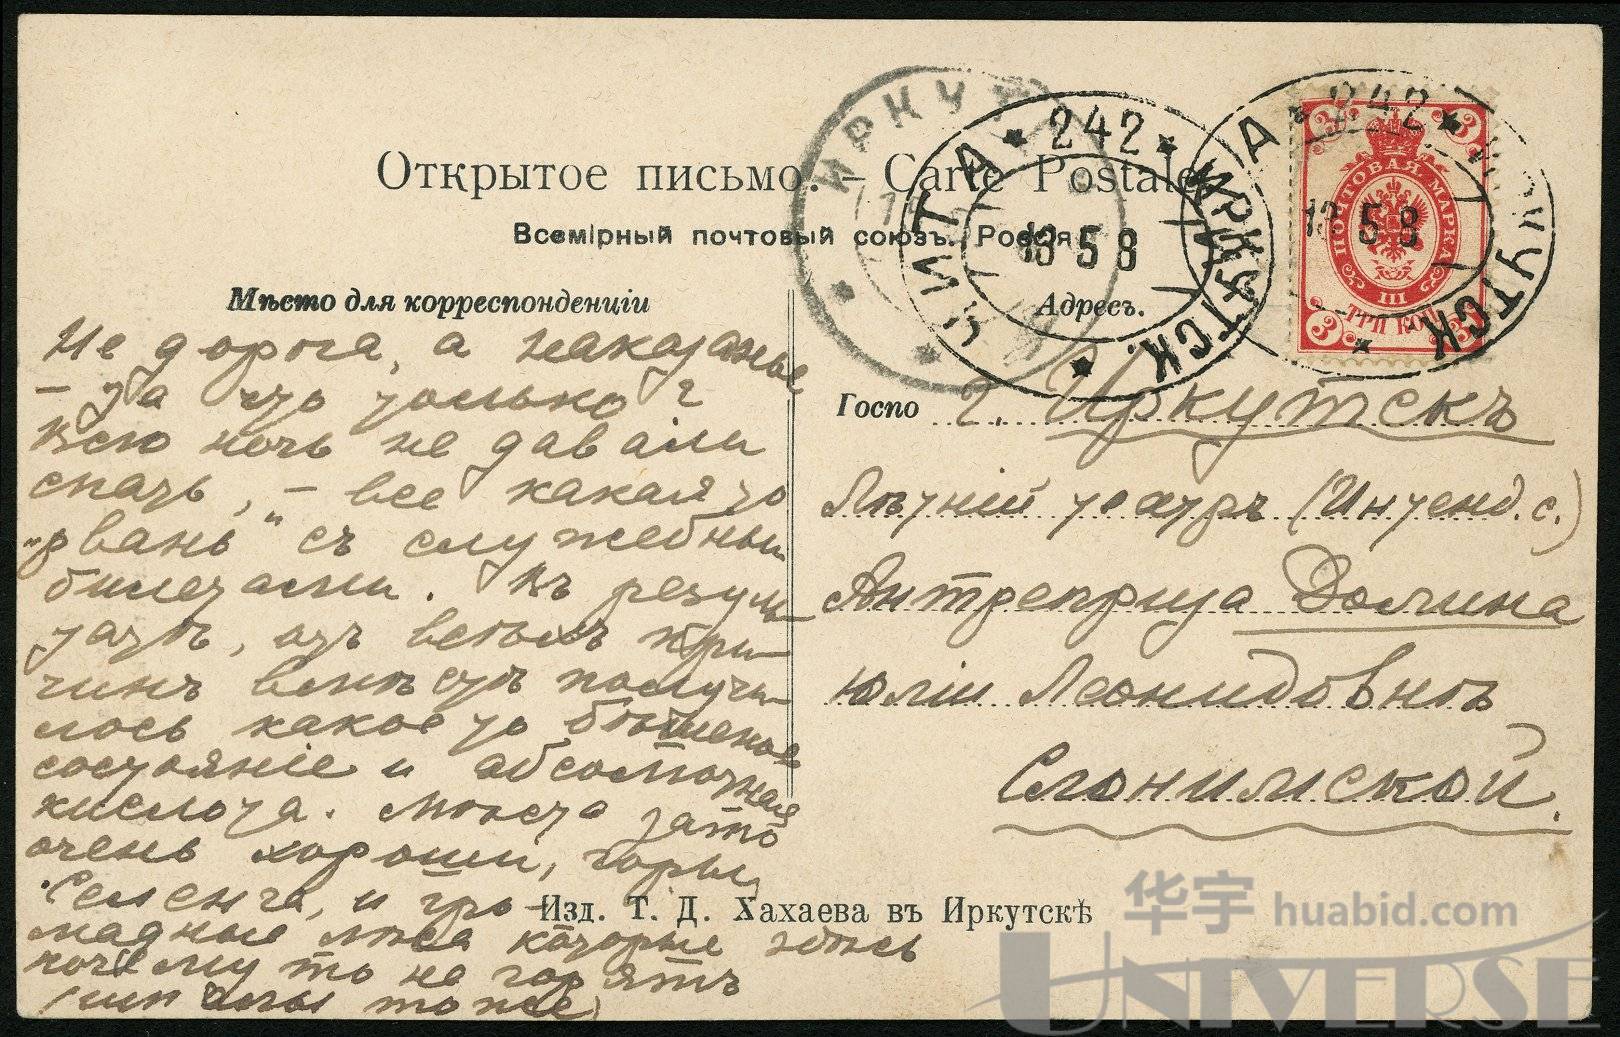 Открытое письмо. – Carte Postale
Всемірный почтовый союзъ. Россія
Мѣсто для корреспонденціи
Адресъ.
ИРКУТ
ЧИТА * 242 * ИРКУТСК.
13 5 8
ЧИТА * 242 * ИРКУТСК
13 5 8
3 3
ПОЧТОВАЯ МАРКА
III
ТРИ КОП.
3 3
Не дорога, а наказанье
– за что только?
Всю ночь не давали
спать, – все какая то
„рвань" съ служебными
билетами. Въ резуль
татѣ, отъ всѣхъ при
чинъ вмѣстѣ получи
лось какое то бѣшеное
состояніе и абсолютная
кислота. Мѣста зато
очень хороши, горы,
Селенга, и гро–
мадные лѣса которые здѣсь
почему то не горятъ
тоже)
Госпо г. Иркутскъ
Лѣтній театръ (Интенд. с.)
Антреприза Долина
Юліи Леонидовнѣ
Слонимской.
Изд. Т. Д. Хахаева въ Иркутскѣ
华宇 huabid.com
UNIVERSE